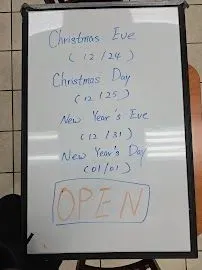 Christmas Eve
(12/24)
Christmas Day
(12/25)
New Year's Eve
(12/31)
New Year's Day
(01/01)
OPEN